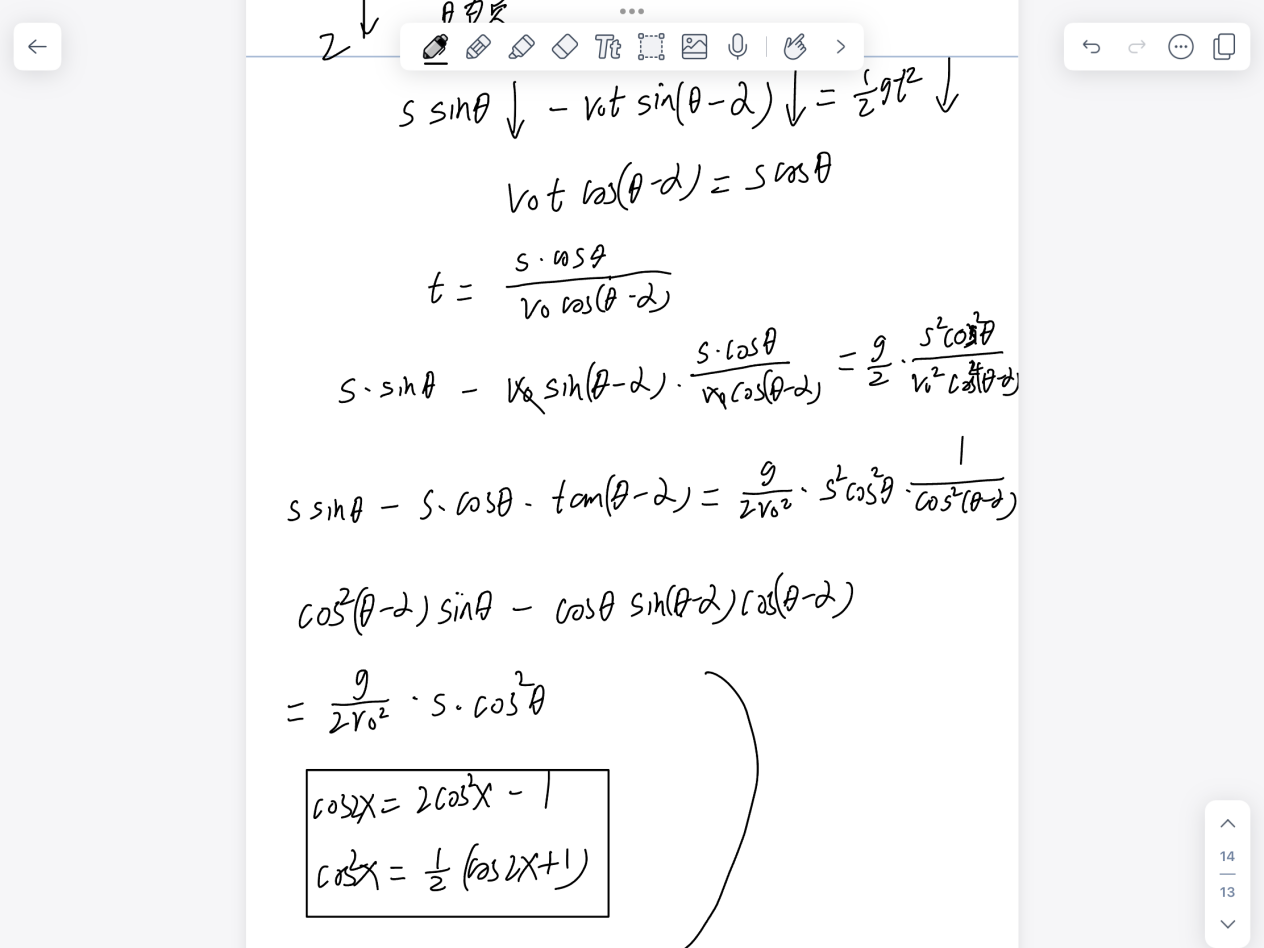 2↓
s sinθ↓ - v₀t sin(θ-α)↓ = ½gt²↓
v₀t cos(θ-α) = s cosθ
t = s·cosθ / v₀ cos(θ-α)
s·sinθ - v₀ sin(θ-α) · s·cosθ / v₀ cos(θ-α) = g/2 · s²cos²θ / v₀² cos²(θ-α)
s sinθ - s·cosθ · tan(θ-α) = g/2v₀² · s²cos²θ · 1/cos²(θ-α)
cos²(θ-α) sinθ - cosθ sin(θ-α) cos(θ-α)
= g/2v₀² · s·cos²θ
cos2x = 2cos²x - 1
cos²x = ½ (cos2x+1)
Tt
14
13